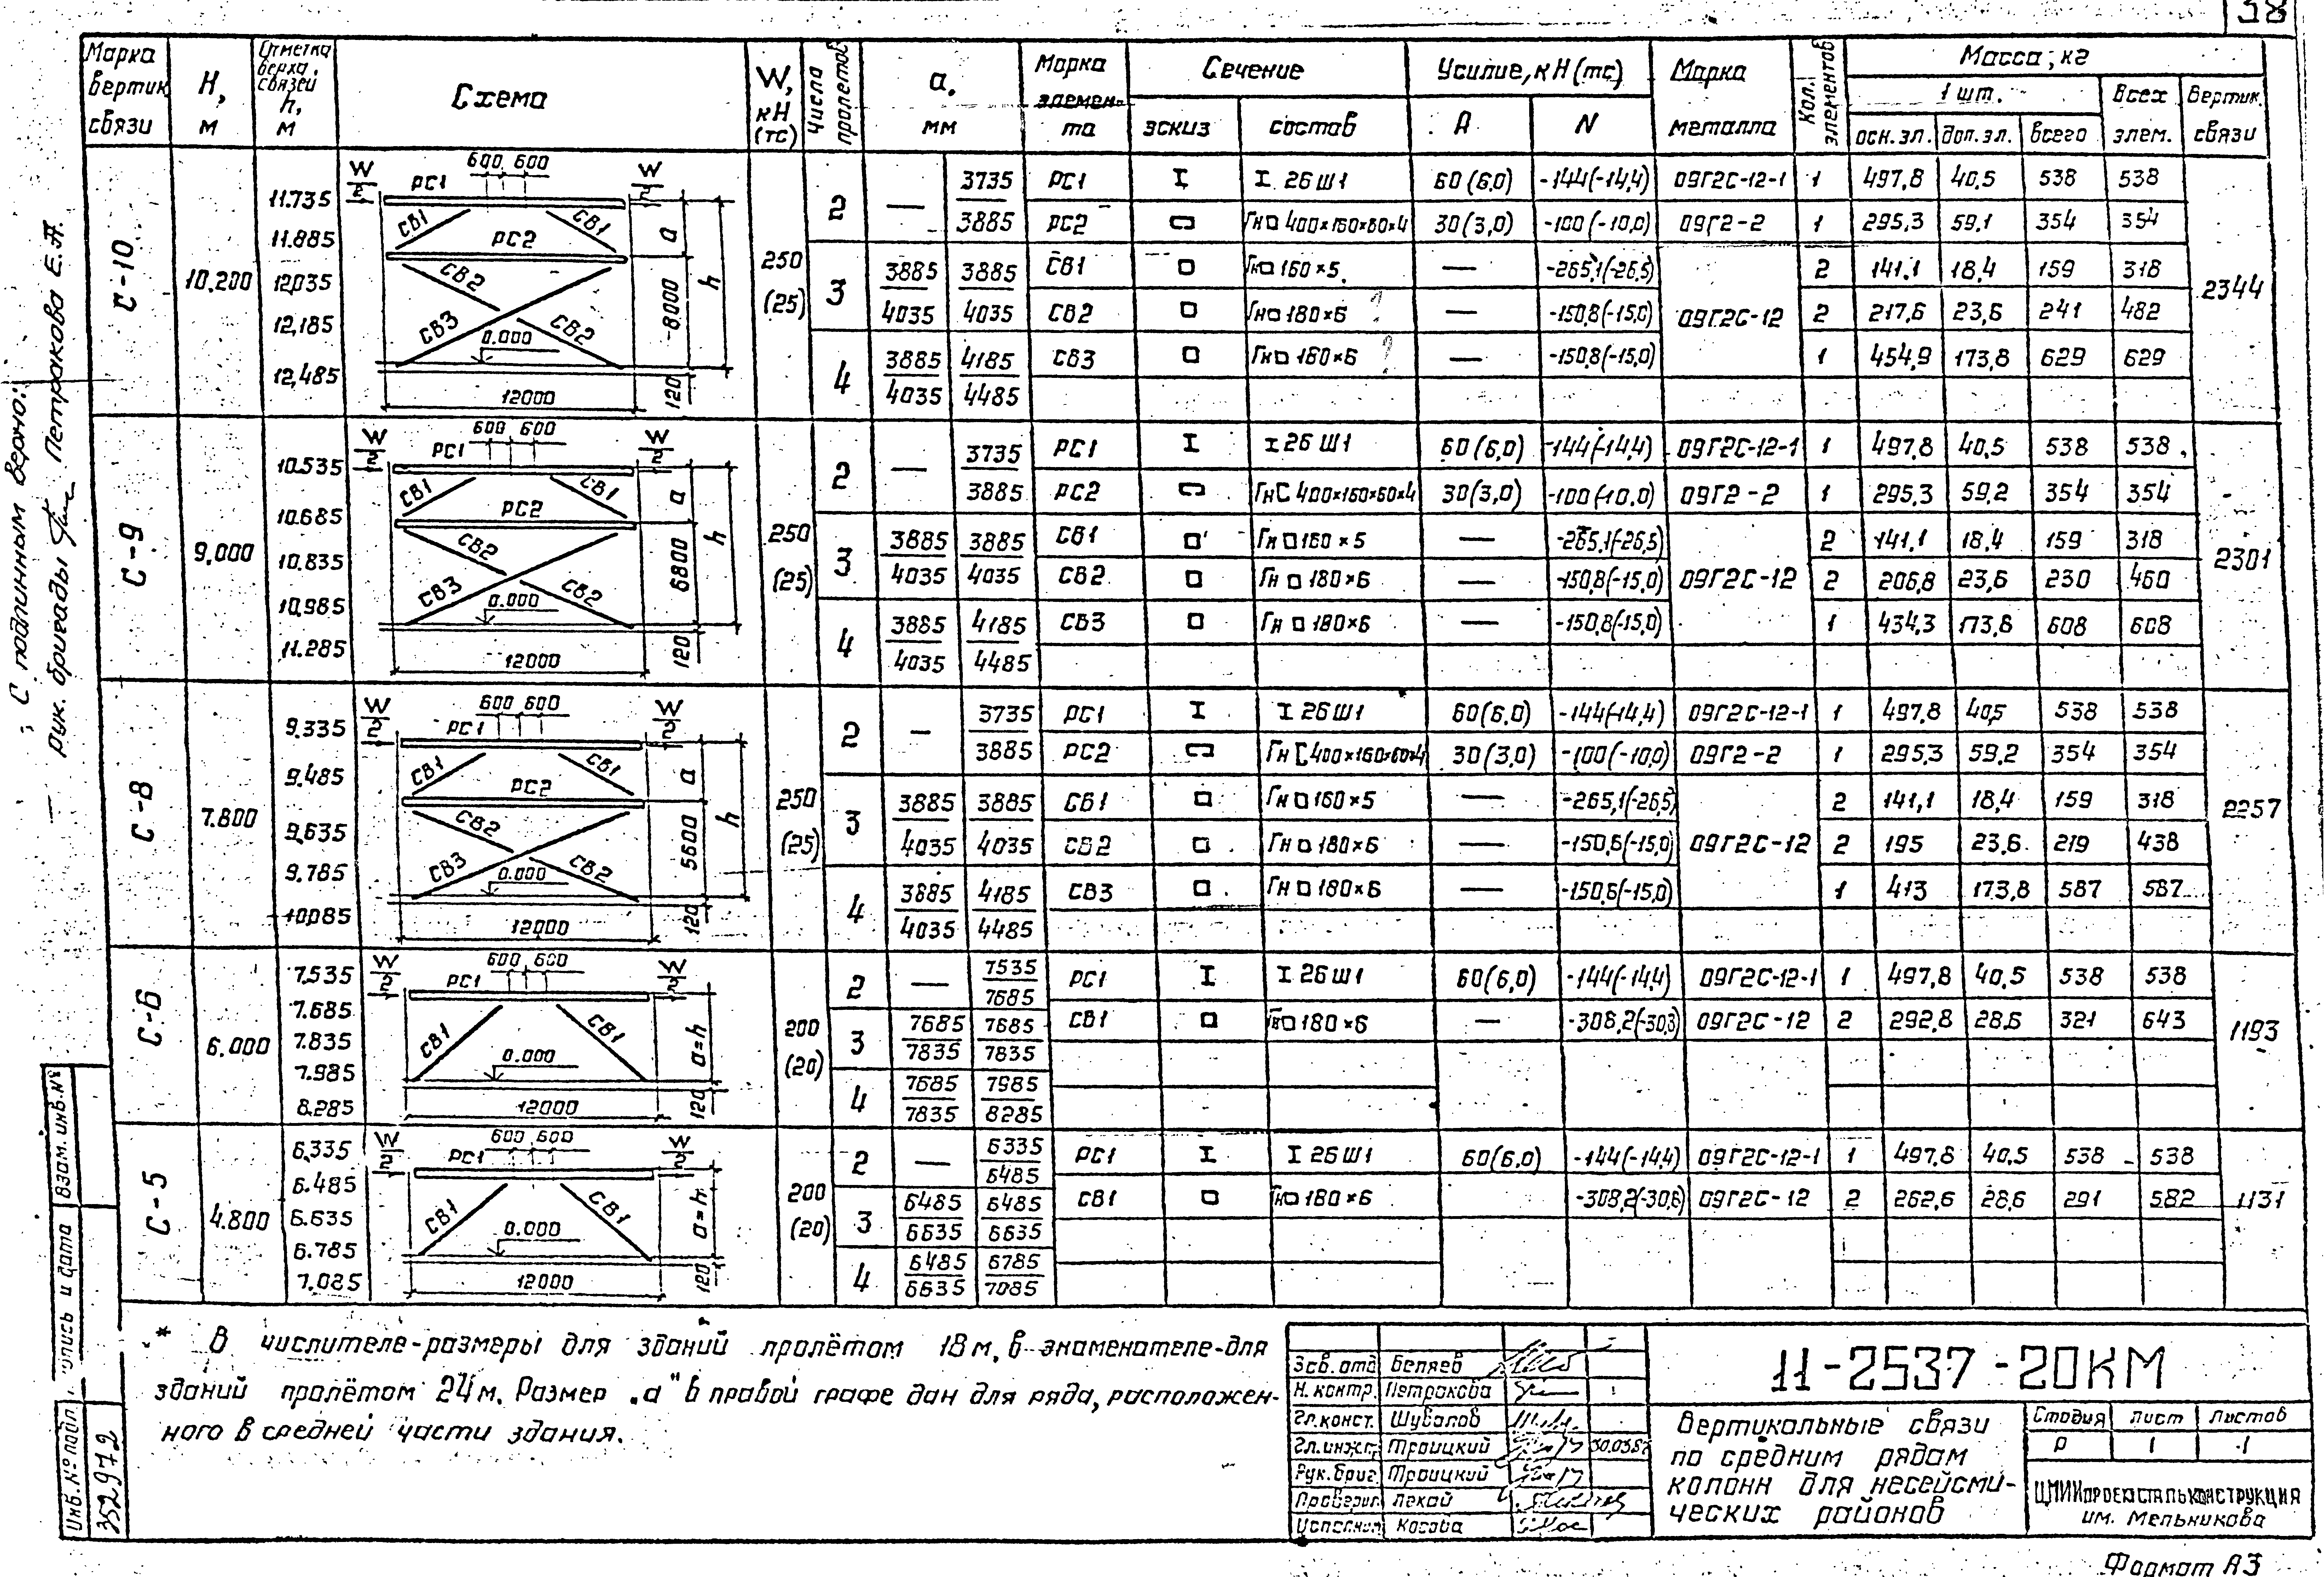 38
Марка вертик. связи | Н, м | Отметка верха связей h, м | Схема | W, кН (тс) | Числа пролетов | а, мм | Марка элемента | Сечение | Усилие, кН (тс) | Марка металла | Кол. элементов | Масса, кг
эскиз | состав | А | N | 1 шт. | Всех элем. | Вертик. связи
осн. эл. | доп. эл. | всего
С-10 | 10.200 | 250 (25) | 2344
11.735
11.885
12.035
12.185
12.485
W/2 РС1 600 600 W/2
СВ1 СВ1 а
РС2
СВ2 h
8000
СВ3 0.000 СВ2
12000 120
2 | — | 3735 / 3885
3 | 3885 / 4035 | 3885 / 4035
4 | 3885 / 4035 | 4185 / 4485
РС1 | I 26Ш1 | 60 (6,0) | -144 (-14,4) | 09Г2С-12-1 | 1 | 497,8 | 40,5 | 538 | 538
РС2 | 400×160×60×4 | 30 (3,0) | -100 (-10,0) | 09Г2-2 | 1 | 295,3 | 59,1 | 354 | 354
СВ1 | Гн□ 160×5 | — | -265,1 (-26,5) | 09Г2С-12 | 2 | 141,1 | 18,4 | 159 | 318
СВ2 | Гн□ 180×6 | — | -150,8 (-15,0) | 2 | 217,6 | 23,6 | 241 | 482
СВ3 | Гн□ 180×6 | — | -150,8 (-15,0) | 1 | 454,9 | 173,8 | 629 | 629
С-9 | 9.000 | 250 (25) | 2301
10.535
10.685
10.835
10.985
11.285
W/2 РС1 600 600 W/2
СВ1 СВ1 а
РС2
СВ2 h
6800
СВ3 0.000 СВ2
12000 120
2 | — | 3735 / 3885
3 | 3885 / 4035 | 3885 / 4035
4 | 3885 / 4035 | 4185 / 4485
РС1 | I 26Ш1 | 60 (6,0) | -144 (-14,4) | 09Г2С-12-1 | 1 | 497,8 | 40,5 | 538 | 538
РС2 | Гн[ 400×160×60×4 | 30 (3,0) | -100 (-10,0) | 09Г2-2 | 1 | 295,3 | 59,2 | 354 | 354
СВ1 | Гн□ 160×5 | — | -265,1 (-26,5) | 09Г2С-12 | 2 | 141,1 | 18,4 | 159 | 318
СВ2 | Гн□ 180×6 | — | -150,8 (-15,0) | 2 | 206,8 | 23,6 | 230 | 460
СВ3 | Гн□ 180×6 | — | -150,8 (-15,0) | 1 | 434,3 | 173,8 | 608 | 608
С-8 | 7.800 | 250 (25) | 2257
9.335
9.485
9.635
9.785
10.085
W/2 РС1 600 600 W/2
СВ1 СВ1 а
РС2
СВ2 h
5600
СВ3 0.000 СВ2
12000 120
2 | — | 3735 / 3885
3 | 3885 / 4035 | 3885 / 4035
4 | 3885 / 4035 | 4185 / 4485
РС1 | I 26Ш1 | 60 (6,0) | -144 (-14,4) | 09Г2С-12-1 | 1 | 497,8 | 40,5 | 538 | 538
РС2 | Гн[ 400×160×60×4 | 30 (3,0) | -100 (-10,0) | 09Г2-2 | 1 | 295,3 | 59,2 | 354 | 354
СВ1 | Гн□ 160×5 | — | -265,1 (-26,5) | 09Г2С-12 | 2 | 141,1 | 18,4 | 159 | 318
СВ2 | Гн□ 180×6 | — | -150,6 (-15,0) | 2 | 195 | 23,6 | 219 | 438
СВ3 | Гн□ 180×6 | — | -150,6 (-15,0) | 1 | 413 | 173,8 | 587 | 587
С-6 | 6.000 | 200 (20) | 1193
7.535
7.685
7.835
7.985
8.285
W/2 РС1 600 600 W/2
СВ1 СВ1 а=h
0.000
12000 120
2 | — | 7535 / 7685
3 | 7685 / 7835 | 7685 / 7835
4 | 7685 / 7835 | 7985 / 8285
РС1 | I 26Ш1 | 60 (6,0) | -144 (-14,4) | 09Г2С-12-1 | 1 | 497,8 | 40,5 | 538 | 538
СВ1 | □ 180×6 | — | 09Г2С-12 | 2 | 292,8 | 28,6 | 321 | 643
С-5 | 4.800 | 200 (20) | 1131
6.335
6.485
6.635
6.785
7.085
W/2 РС1 600 600 W/2
СВ1 СВ1 а=h
0.000
12000 120
2 | — | 6335 / 6485
3 | 6485 / 6635 | 6485 / 6635
4 | 6485 / 6635 | 6785 / 7085
РС1 | I 26Ш1 | 60 (6,0) | -144 (-14,4) | 09Г2С-12-1 | 1 | 497,8 | 40,5 | 538 | 538
СВ1 | Гн□ 180×6 | 09Г2С-12 | 2 | 262,6 | 28,6 | 291 | 582
* В числителе-размеры для зданий пролётом 18 м, в знаменателе-для
зданий пролётом 24 м. Размер „а" в правой графе дан для ряда, расположен-
ного в средней части здания.
11-2537-20КМ
Зав. отд. Беляев
Н. контр. Петракова
Гл. конст. Шувалов
Гл. инж. Троицкий
Рук. бриг. Троицкий
Проверил Лекай
Исполнил Косова
Вертикальные связи
по средним рядам
колонн для несейсми-
ческих районов
Стадия | Лист | Листов
Р | 1 | 1
ЦНИИпроектстальконструкция
им. Мельникова
Формат А3
С подлинным верно:
Рук. бригады Петракова Е.Л.
Взам. инв. №
подпись и дата
Инв. № подл.
352972